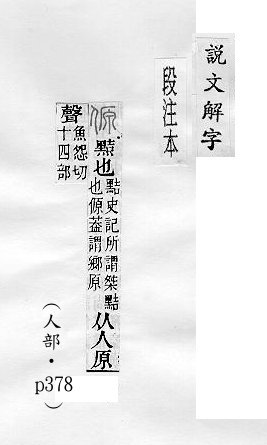 説文解字
段注本
傆黠也
黠史記所謂桀黠
也傆葢謂鄉原
从人原
聲
魚怨切
十四部
（人部・p378）